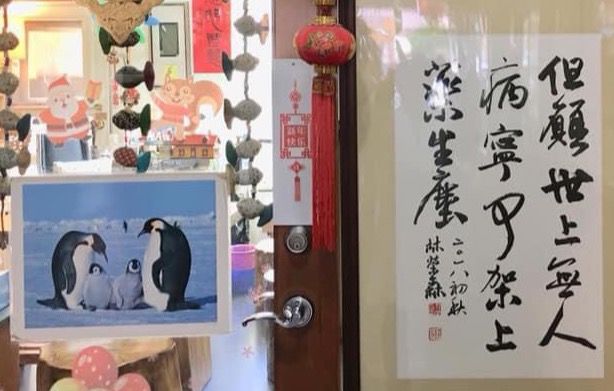 但願世上無人
病寧可架上
藥生塵
二〇一八初秋
林榮森
新年
快乐